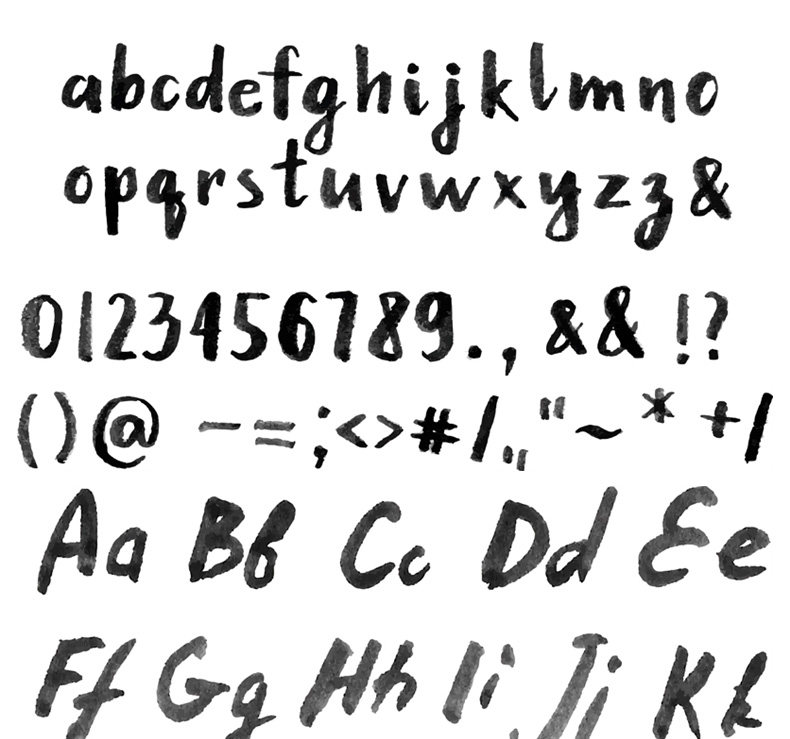 abcdefghijklmno
opqrstuvwxyzz&
0123456789., && !?
()@ -=;<>#/„"~* +/
Aa Bb Cc Dd Ee
Ff Gg Hh Ii Jj Kk